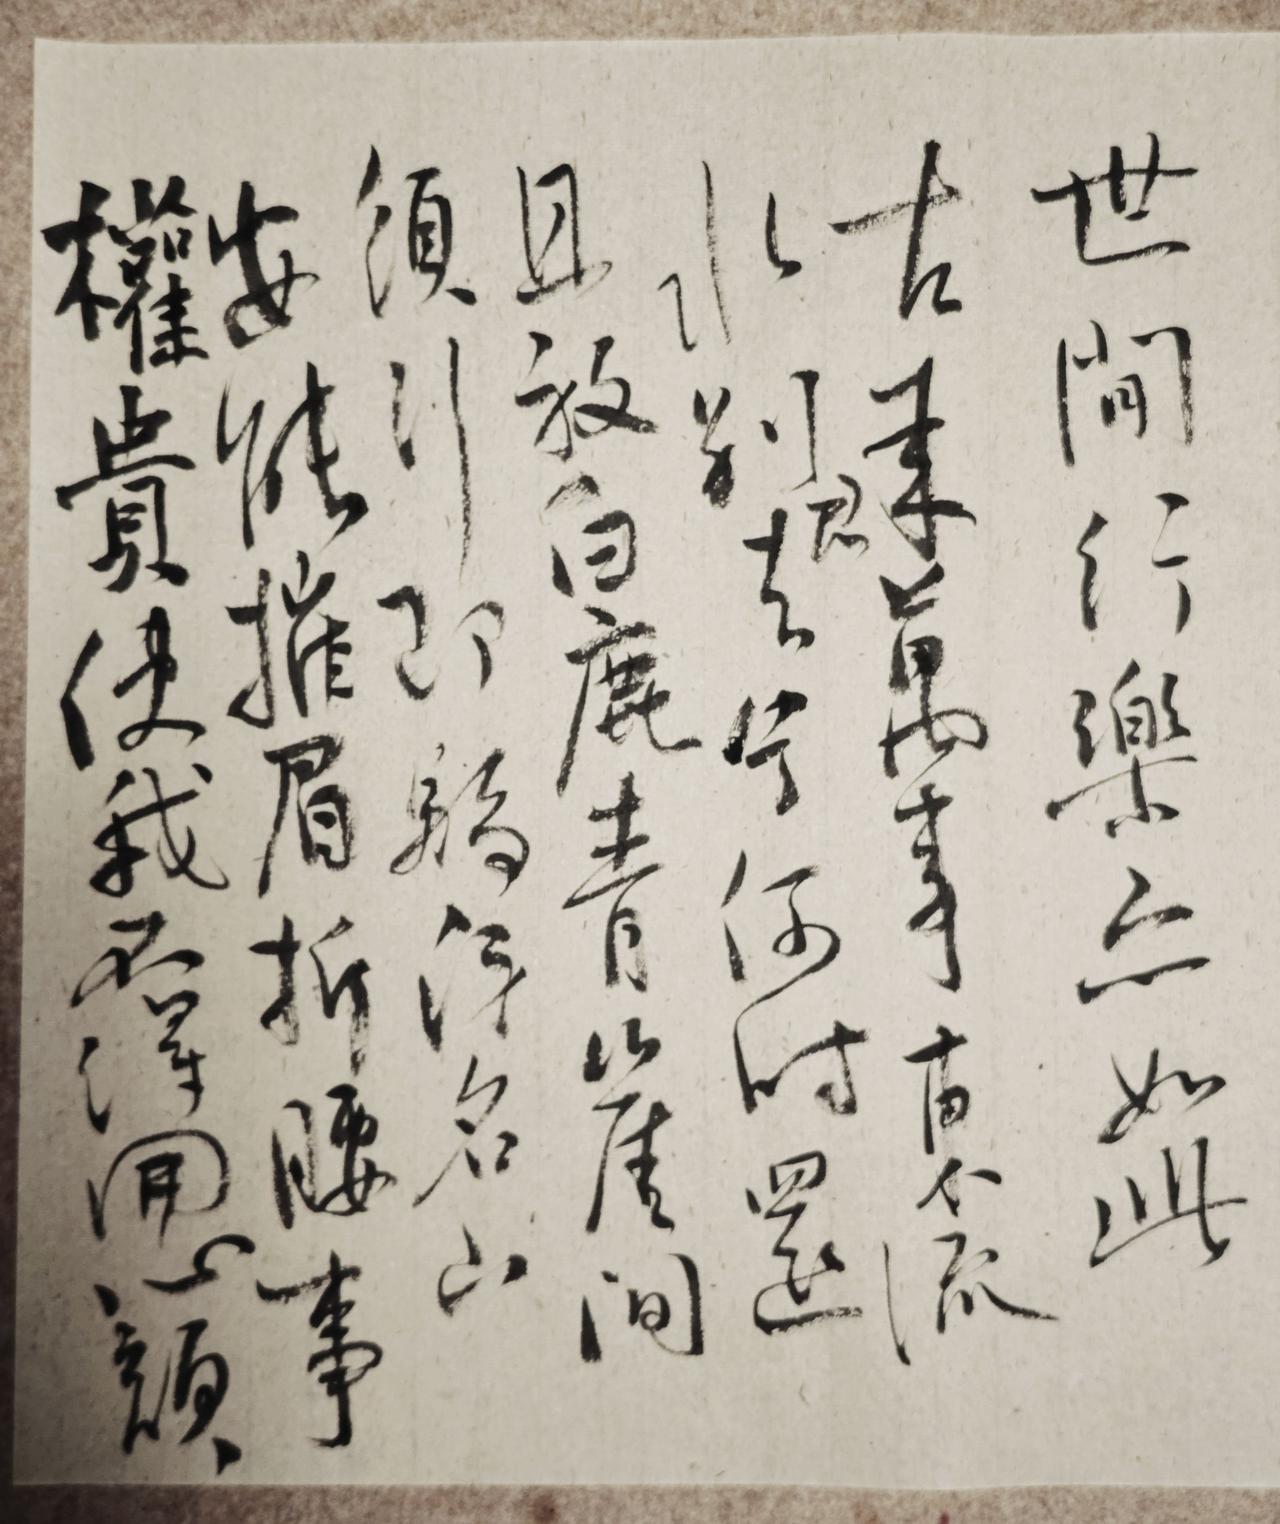 世間行樂亦如此
古來萬事東不流
水別君去兮何時還
且放白鹿青崖间
須行即騎訪名山
安能摧眉折腰事
權貴使我不得開心顏